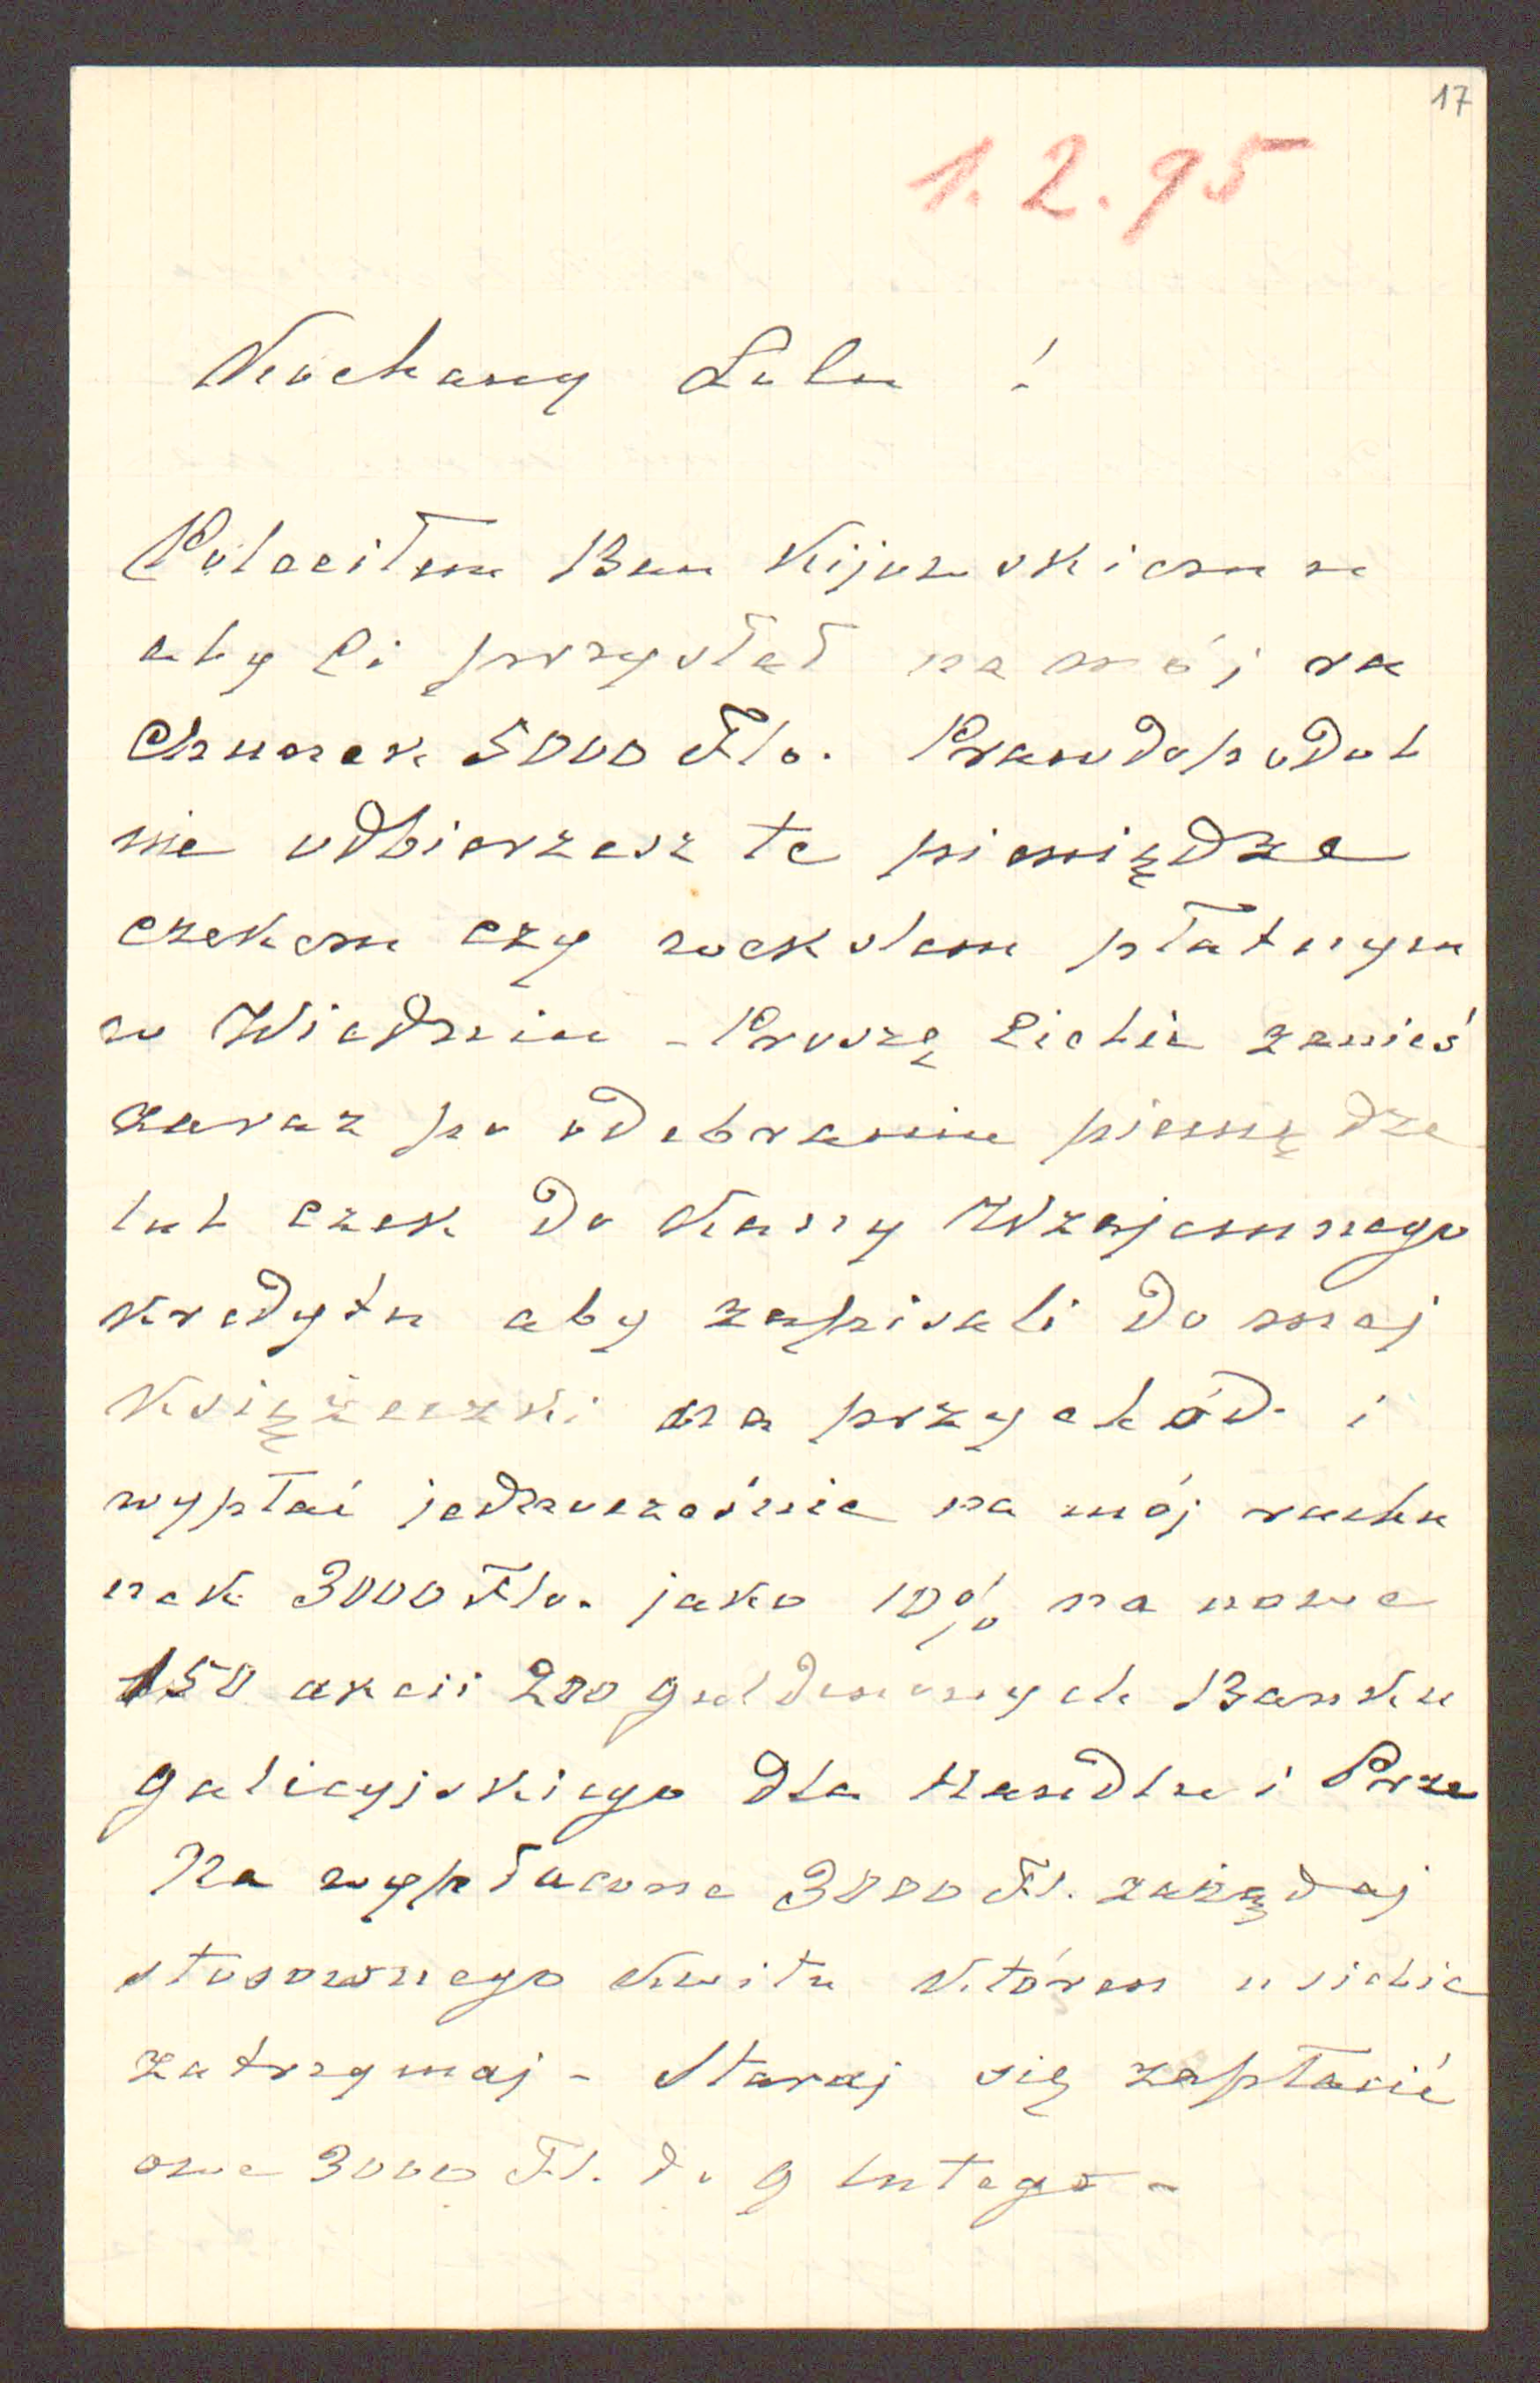 17
1.2.95
Kochany Lolu!
Poleciłem Ban Kijowskiemu
aby Ci przysłał na mój ra
chunek 5000 Flo. Prawdopodob
nie odbierzesz te pieniądze
czekem czy wekslem płatnym
w Wiedniu - Proszę Ciebie zanieś
zaraz po odebraniu pieniądze
lub czek do Kassy Wzajemnego
kredytu aby zapisali do mej
Książeczki na przychód i
wypłać jednocześnie na mój rachu
nek 3000 Flo. jako 10% na nowe
150 akcii 200 guldenowych Banku
galicyjskiego dla Handlu i Prze
Na wypłacone 3000 Fl. zażądaj
stosownego kwitu któren u siebie
zatrzymaj - Staraj się zapłacić
owe 3000 Fl. do 9 lutego -